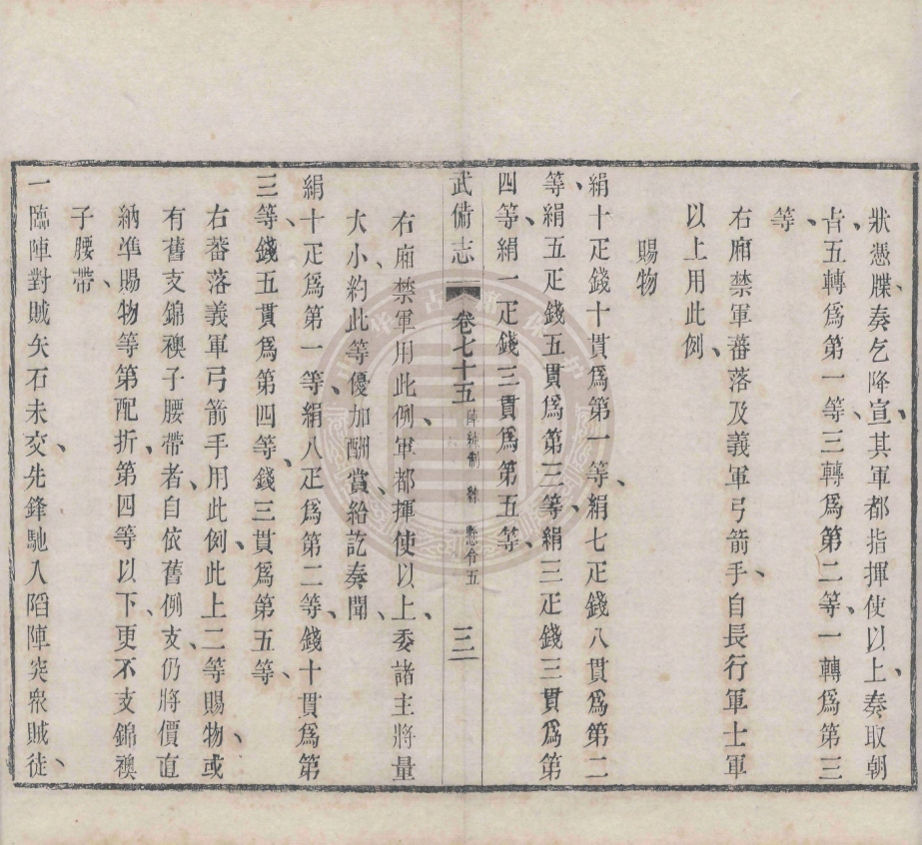 狀憑牒奏乞降宣其軍都指揮使以上奏取朝
旨五轉爲第一等三轉爲第二等一轉爲第三
等
右廂禁軍蕃落及義軍弓箭手自長行軍士軍
以上用此例
賜物
絹十疋錢十貫爲第一等絹七疋錢八貫爲第二
等絹五疋錢五貫爲第三等絹三疋錢三貫爲第
四等絹一疋錢三貫爲第五等
武備志 卷七十五 陣練制 練 教令五 三
右廂禁軍用此例軍都揮使以上委諸主將量
大小約此等優加酬賞給訖奏聞
絹十疋爲第一等絹八疋爲第二等錢十貫爲第
三等錢五貫爲第四等錢三貫爲第五等
右蕃落義軍弓箭手用此例此上二等賜物或
有舊支錦襖子腰帶者自依舊例支仍將價直
納準賜物等第配折第四等以下更不支錦襖
子腰帶
一臨陣對賊矢石未交先鋒馳入陷陣突衆賊徒